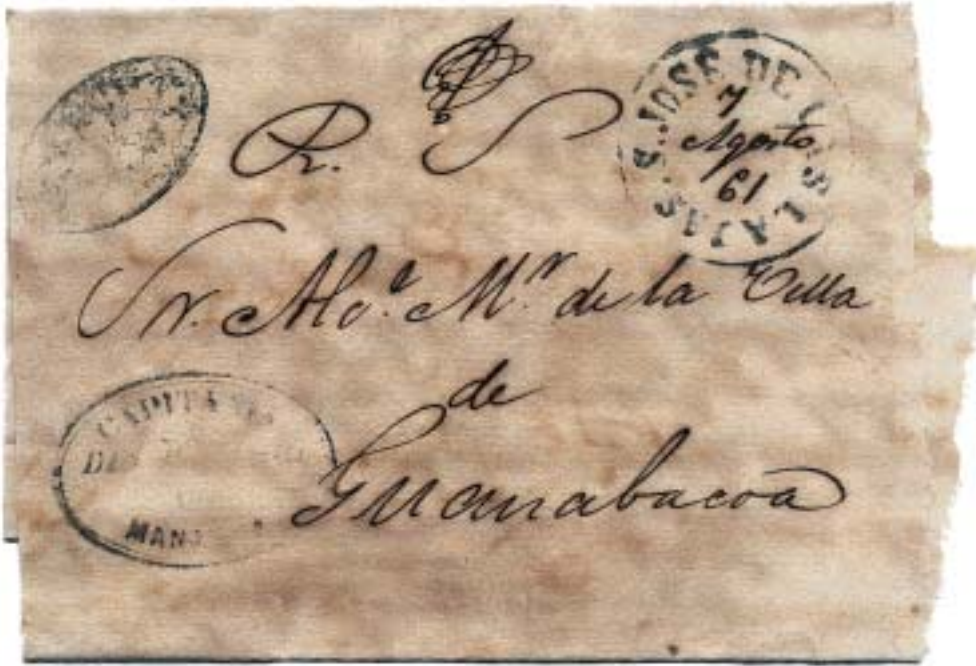 R. S
S. JOSE DE LAS LAJAS.
7
Agosto
61
Sr. Ale.e Mr. de la Villa
de
Guanabacoa
CAPITANIA